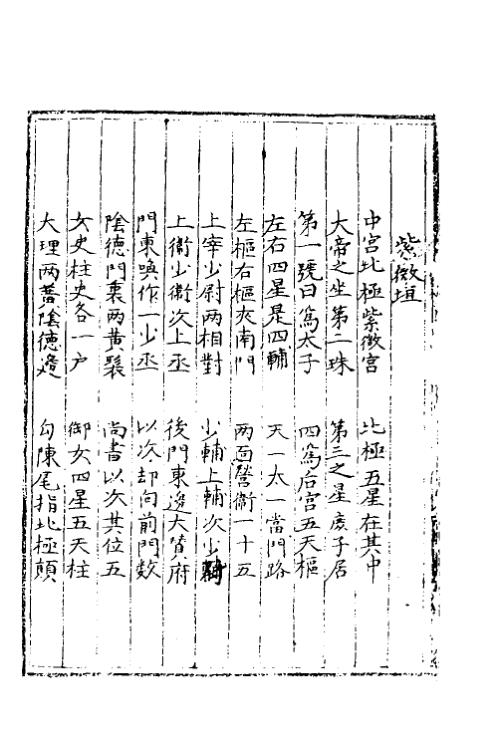 紫微垣
中宮北極紫微宮　北極五星在其中
大帝之坐第二珠　第三之星庶子居
第一號曰為太子　四為后宮五天樞
左右四星是四輔　天一太一當門路
左樞右樞夾南門　兩面營衞一十五
上宰少尉兩相對　少輔上輔次少
上衞少衞次上丞　後門東邊大贊府
門東喚作一少丞　以次却向前門数
陰德門裏兩黄聚　尚書以次其位五
女史柱史各一户　御女四星五天柱
大理兩黃陰德邊　勾陳尾指北極顛